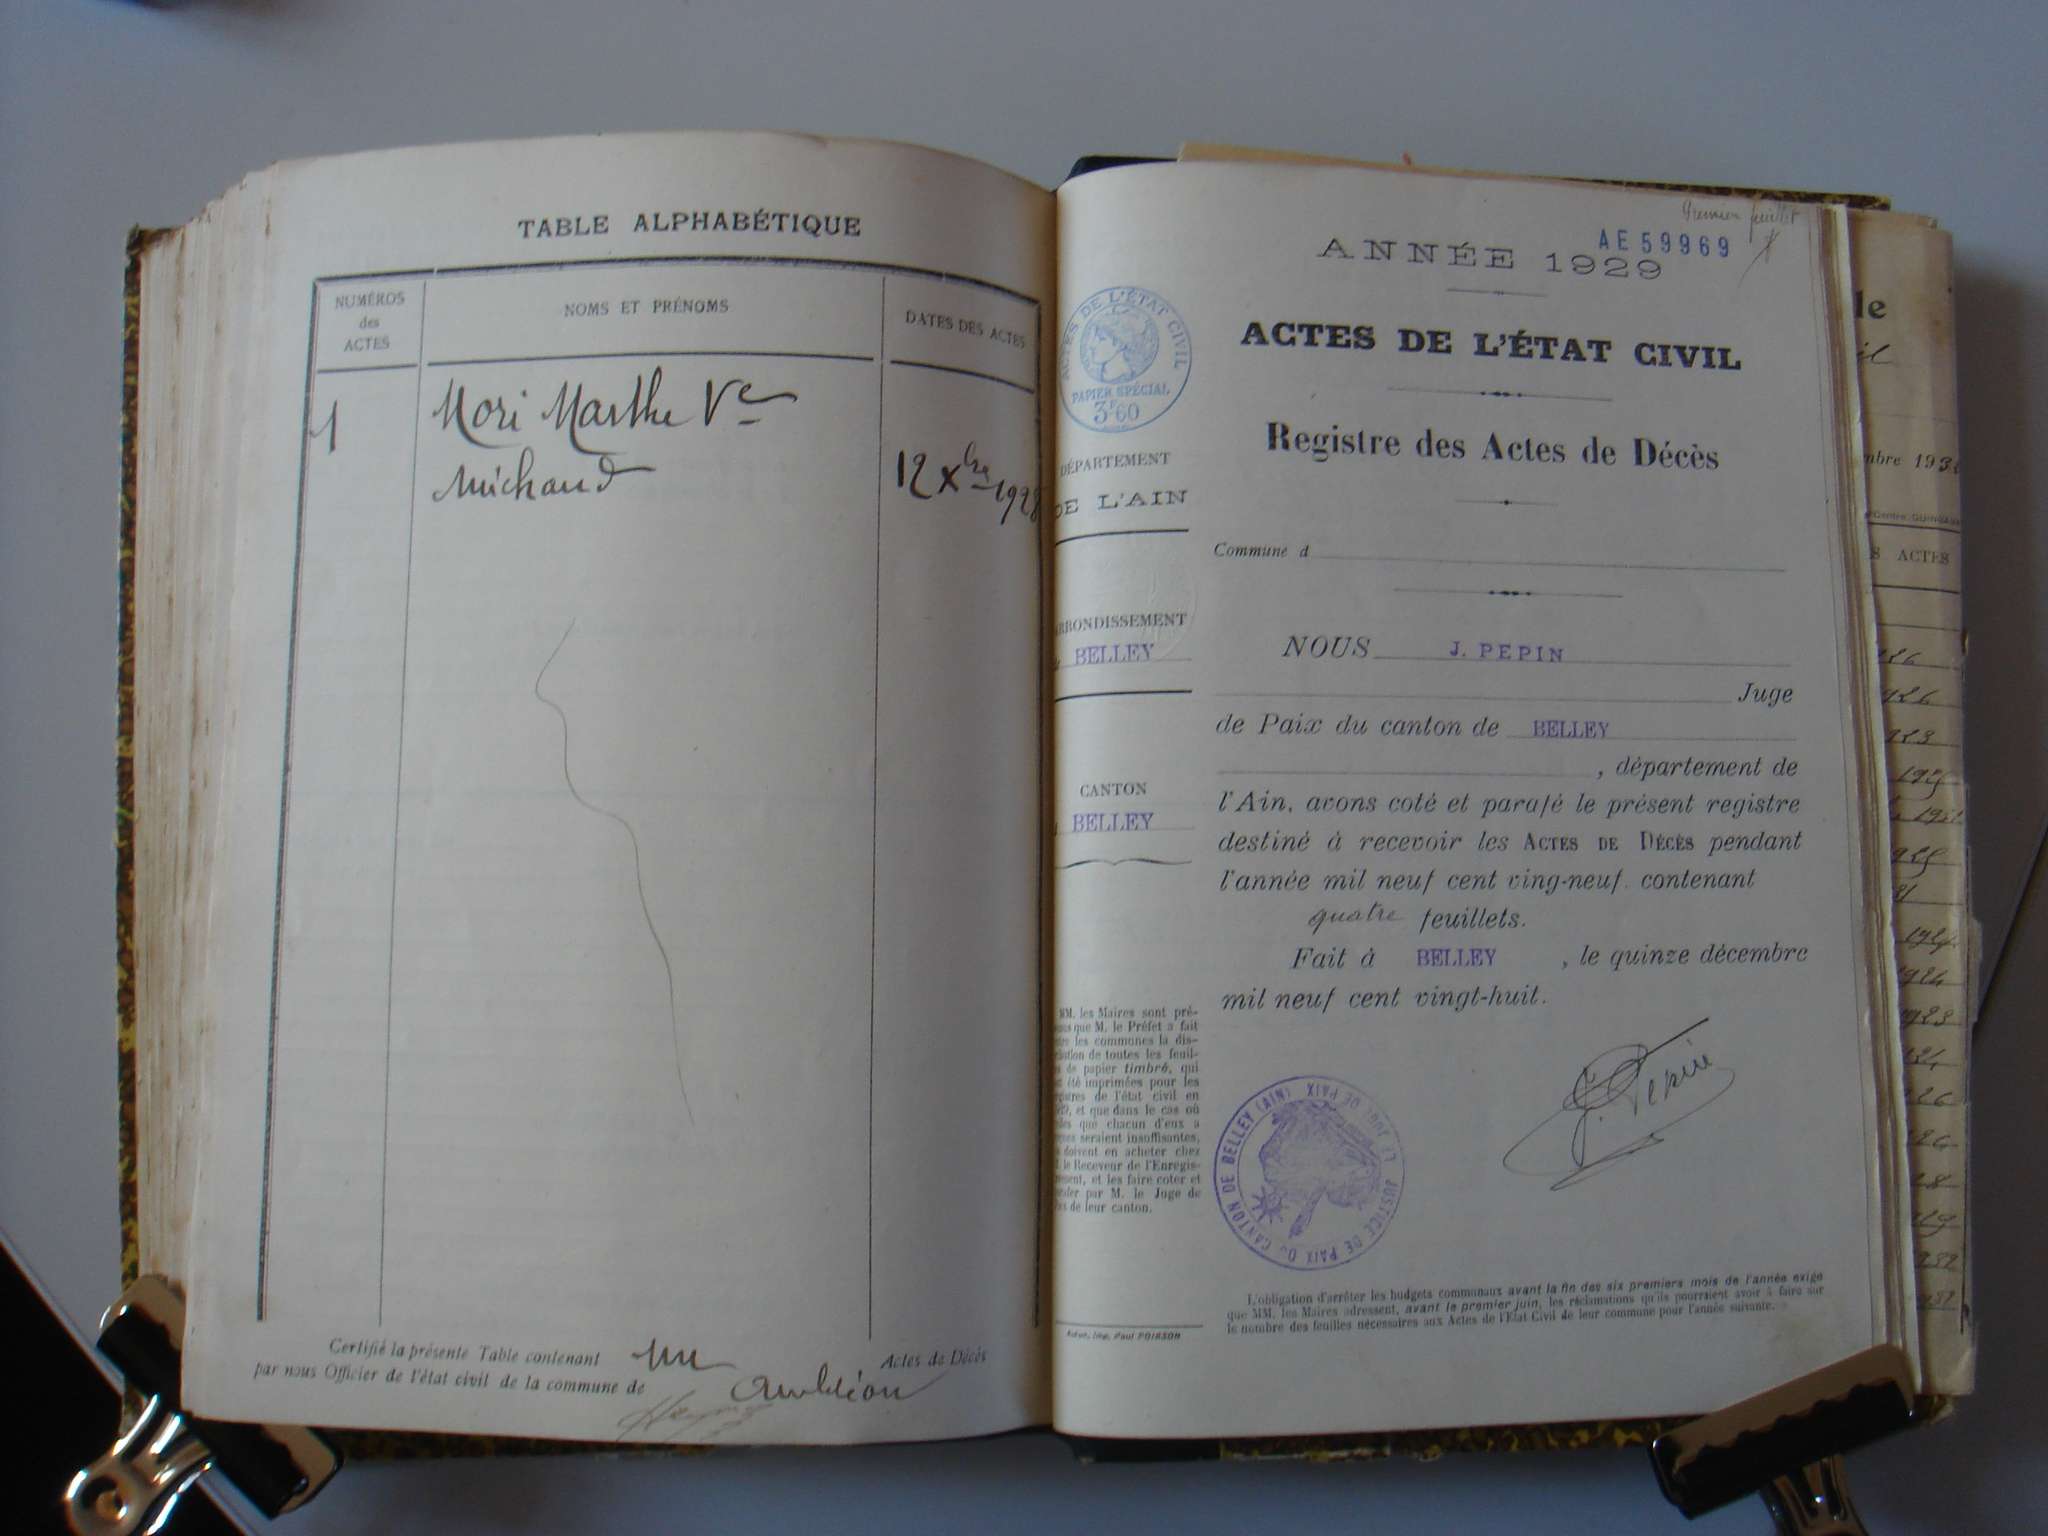 TABLE ALPHABÉTIQUE
NUMÉROS
des
ACTES
NOMS ET PRÉNOMS
DATES DES ACTES
1
Mori Marthe Ve
Michaud
12 Xbre 1928
Certifié la présente Table contenant un Actes de Décès
par nous Officier de l'état civil de la commune de Ambléon
Premier feuillet
AE 59969
ANNÉE 1929
ACTES DE L'ÉTAT CIVIL
ACTES DE L'ÉTAT CIVIL
PAPIER SPÉCIAL
3F60
Registre des Actes de Décès
DÉPARTEMENT
DE L'AIN
Commune d
ARRONDISSEMENT
BELLEY
CANTON
BELLEY
NOUS J. PEPIN
Juge
de Paix du canton de BELLEY
, département de
l'Ain, avons coté et parafé le présent registre
destiné à recevoir les ACTES DE DÉCÈS pendant
l'année mil neuf cent ving-neuf. contenant
quatre feuillets.
Fait à BELLEY , le quinze décembre
mil neuf cent vingt-huit.
J. Pepin
JUSTICE DE PAIX DU CANTON DE BELLEY (AIN)
LE JUGE DE PAIX
MM. les Maires sont pré-
que M. le Préfet a fait
les communes la dis-
de toutes les feuil-
de papier timbré, qui
été imprimées pour les
de l'état civil en
et que dans le cas où
que chacun d'eux a
seraient insuffisantes,
doivent en acheter chez
le Receveur de l'Enregis-
et les faire coter et
par M. le Juge de
de leur canton.
L'obligation d'arrêter les budgets communaux avant la fin des six premiers mois de l'année exige
que MM. les Maires adressent, avant le premier juin, les réclamations qu'ils pourraient avoir à faire sur
le nombre des feuilles nécessaires aux Actes de l'État Civil de leur commune pour l'année suivante.
Imp. Paul POISSON
le
ACTES